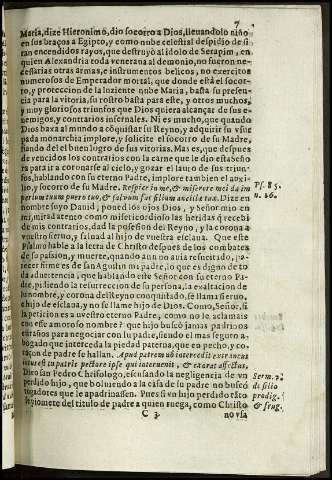 7
Maria, dize Hieronimo, dio socorro a Dios, lleuandolo niño
en sus braços a Egipto, y como nube celestial despidio de si
tan encendidos rayos, que destruyò al idolo de Serapim, en
quien Alexandria toda veneraua al demonio, no fueron ne-
cessarias otras armas, e instrumentos belicos, no exercitos
numerosos de Emperador mortal, que donde està el soco-
rro, y proteccion de la luziente nube Maria, basta su presen-
cia para la vitoria, su rostro basta para este, y otros muchos,
y muy gloriosos triunfos que Dios quiera alcançar de sus e-
nemigos, y contrarios infernales. Ni es mucho, que quando
Dios baxa al mundo a cõquistar su Reyno, y adquirir su vsur
pada monarchia implore, y solicite el socorro de su Madre,
fiando del el buen logro de sus vitorias. Mas es, que despues
de vencidos los contrarios con la carne que le dio estabeño
ra para ir a coronarse al cielo, y gozar el lauro de sus triun-
fos, hablando con su eterno Padre, implore tambien el auxi-
lio, y socorro de su Madre. Respice in me, & miserere mei da im
perium tuum puero tuo, & saluum fac filium ancillæ tuæ. Dize en
Psal. 85.
n. 16.
suyo Dauid; poned los ojos Dios, y Señor mio en
mi, mirad atento como misericordioso las heridas q̃ recebi
de mis contrarios, dad la possesion del Reyno, y la corona a
vuestro seruo, y saluad al hijo de vuestra esclaua. Que este
Psalmo hable a la letra de Christo despues de los combates
de su passion, y muerte, quando aun no auia resucitado, pa-
recer firme es de san Agustin mi padre, lo que es digno de to
da aduertencia; que hablando este Señor con su eterno Pa-
dre, pidiendo la resurreccion de su persona, la exaltacion de
su nombre, y corona del Reyno conquistado, se llama seruo,
e hijo de esclaua, y no se llame hijo de Dios. Como, Señor, si
la peticion es a vuestro eterno Padre, como no le aclamais
con esse amoroso nombre? que hijo buscò jamas padrinos
estraños para negociar con su padre, siendo el mas seguro a-
bogado que interceda la piedad paterna, que en pecho, y co-
raçon de padre se hallan. Apud patrem nō intercedit extraneus
intus est in patris pectore ipse qui interuenit, & exorat affectus.
Dixo san Pedro Chrisologo, escusando la negligencia de vn
Serm. 2.
de filio
prodig.
& frug.
perdido hijo, que boluiendo a la casa de su padre no buscò
rogadores que le apadrinassen. Pues si vn hijo perdido tãto
se promete del titulo de padre a quien ruega, como Christo
C 3. no vsa